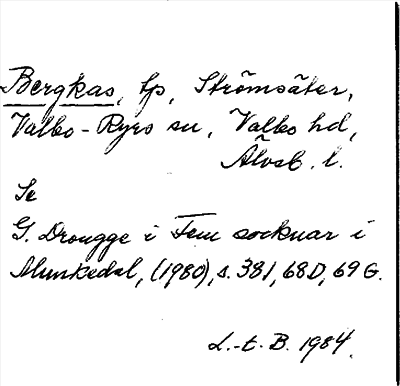 Bergkas, tp, Strömsäter,
Valbo-Ryrs sn, Valbo hd,
Älvsb. l.
Se
G. Drougge i Fem socknar i
Munkedal, (1980), s. 381, 68D, 69G.
L.-t. B. 1984.